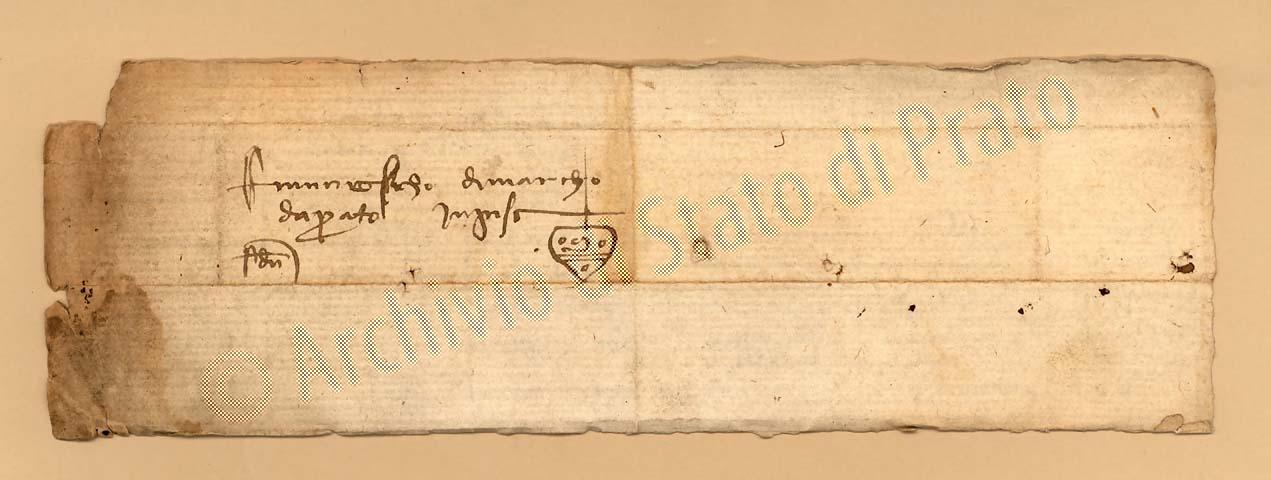 Francescho dimarcho
daprato Inpisa
© Archivio di Stato di Prato